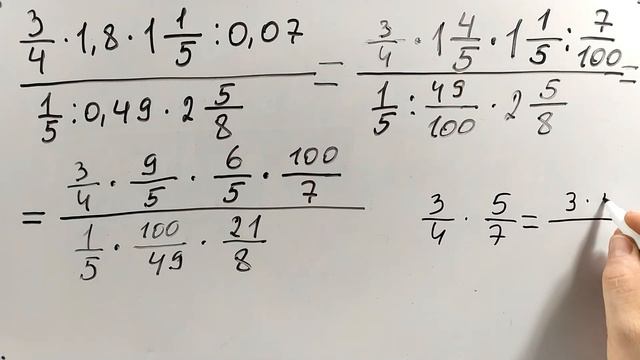 3/4 · 1,8 · 1 1/5 : 0,07 / 1/5 : 0,49 · 2 5/8 = 3/4 · 1 4/5 · 1 1/5 : 7/100 / 1/5 : 49/100 · 2 5/8 =
= 3/4 · 9/5 · 6/5 · 100/7 / 1/5 · 100/49 · 21/8
3/4 · 5/7 = 3 ·